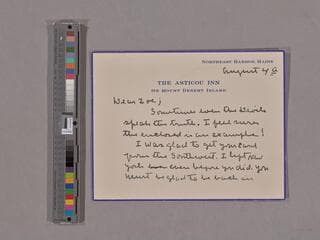 Northeast Harbor, Maine
August 4
THE ASTICOU INN
ON MOUNT DESERT ISLAND
Dear Zoe;
Sometimes even the Devils
speak the truth. I feel sure
the enclosed is an example!
I was glad to get your card
from the Southwest. I left New
York even before you did. You
must be glad to be back in